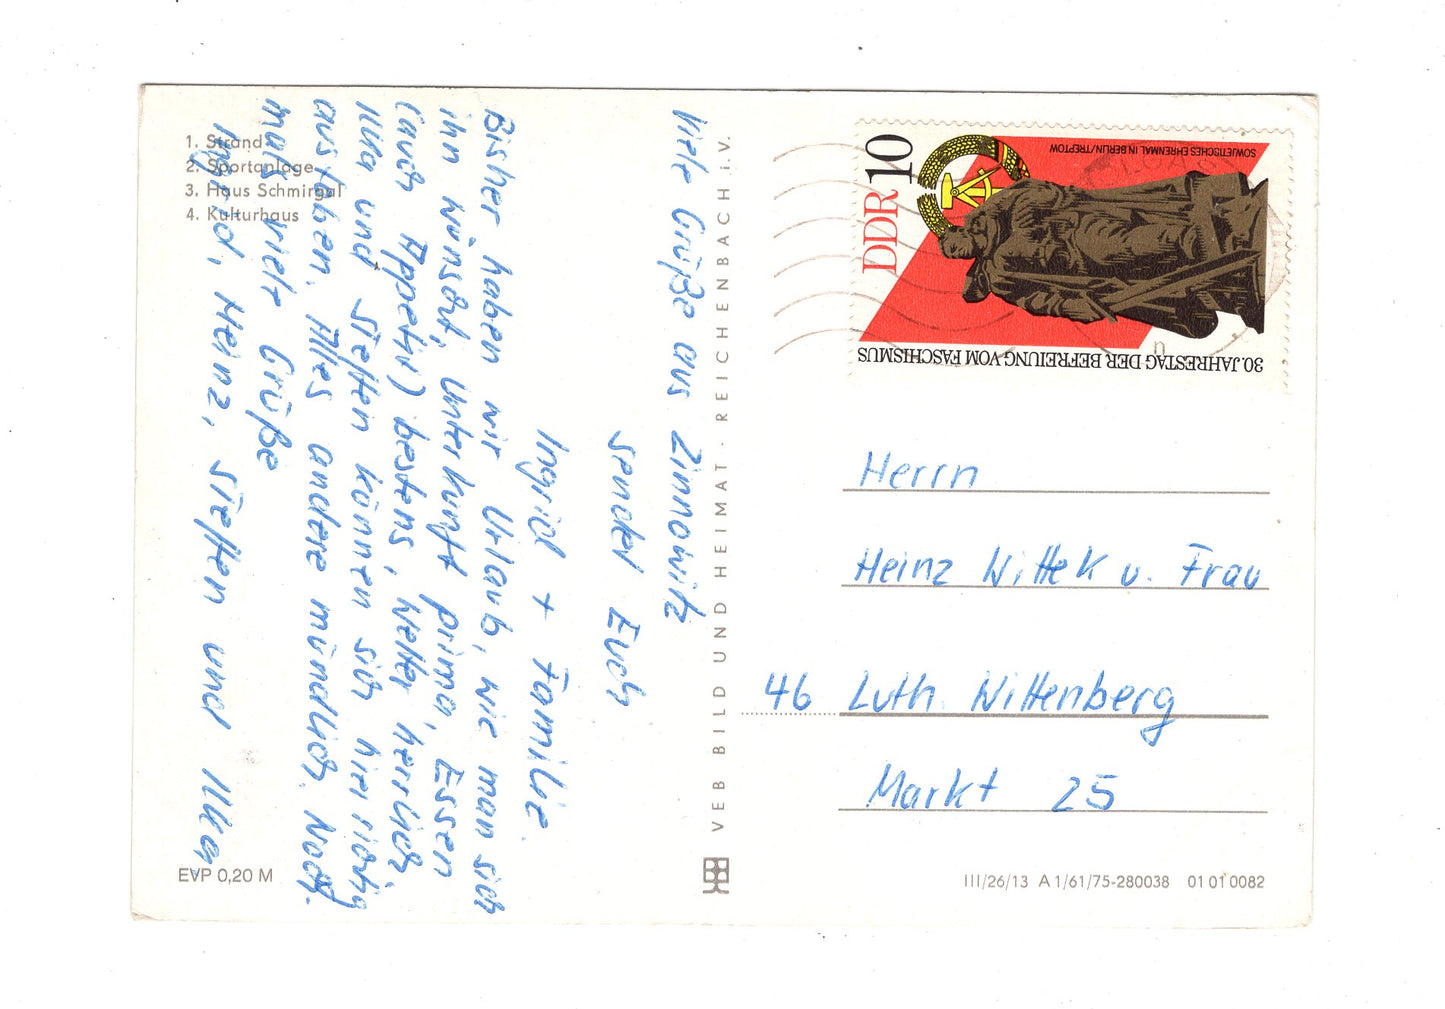 1. Strand
2. Sportanlage
3. Haus Schmirgal
4. Kulturhaus
Viele Grüße aus Zinnowitz
sendet Euch
Ingrid + Familie.
Bisher haben wir Urlaub, wie man sich
ihn wünscht, Unterkunft prima, Essen
(auch Appetit) bestens, Wetter herrlich,
Ilka und Steffen können sich hier richtig
austoben. Alles andere mündlich. Noch
mal viele Grüße
Ingrid, Heinz, Steffen und Ilka
EVP 0,20 M
VEB BILD UND HEIMAT · REICHENBACH i. V.
DDR 10
SOWJETISCHES EHRENMAL IN BERLIN/TREPTOW
30. JAHRESTAG DER BEFREIUNG VOM FASCHISMUS
Herrn
Heinz Wittek u. Frau
46 Luth. Wittenberg
Markt 25
III/26/13 A 1/61/75-280038 01 01 0082